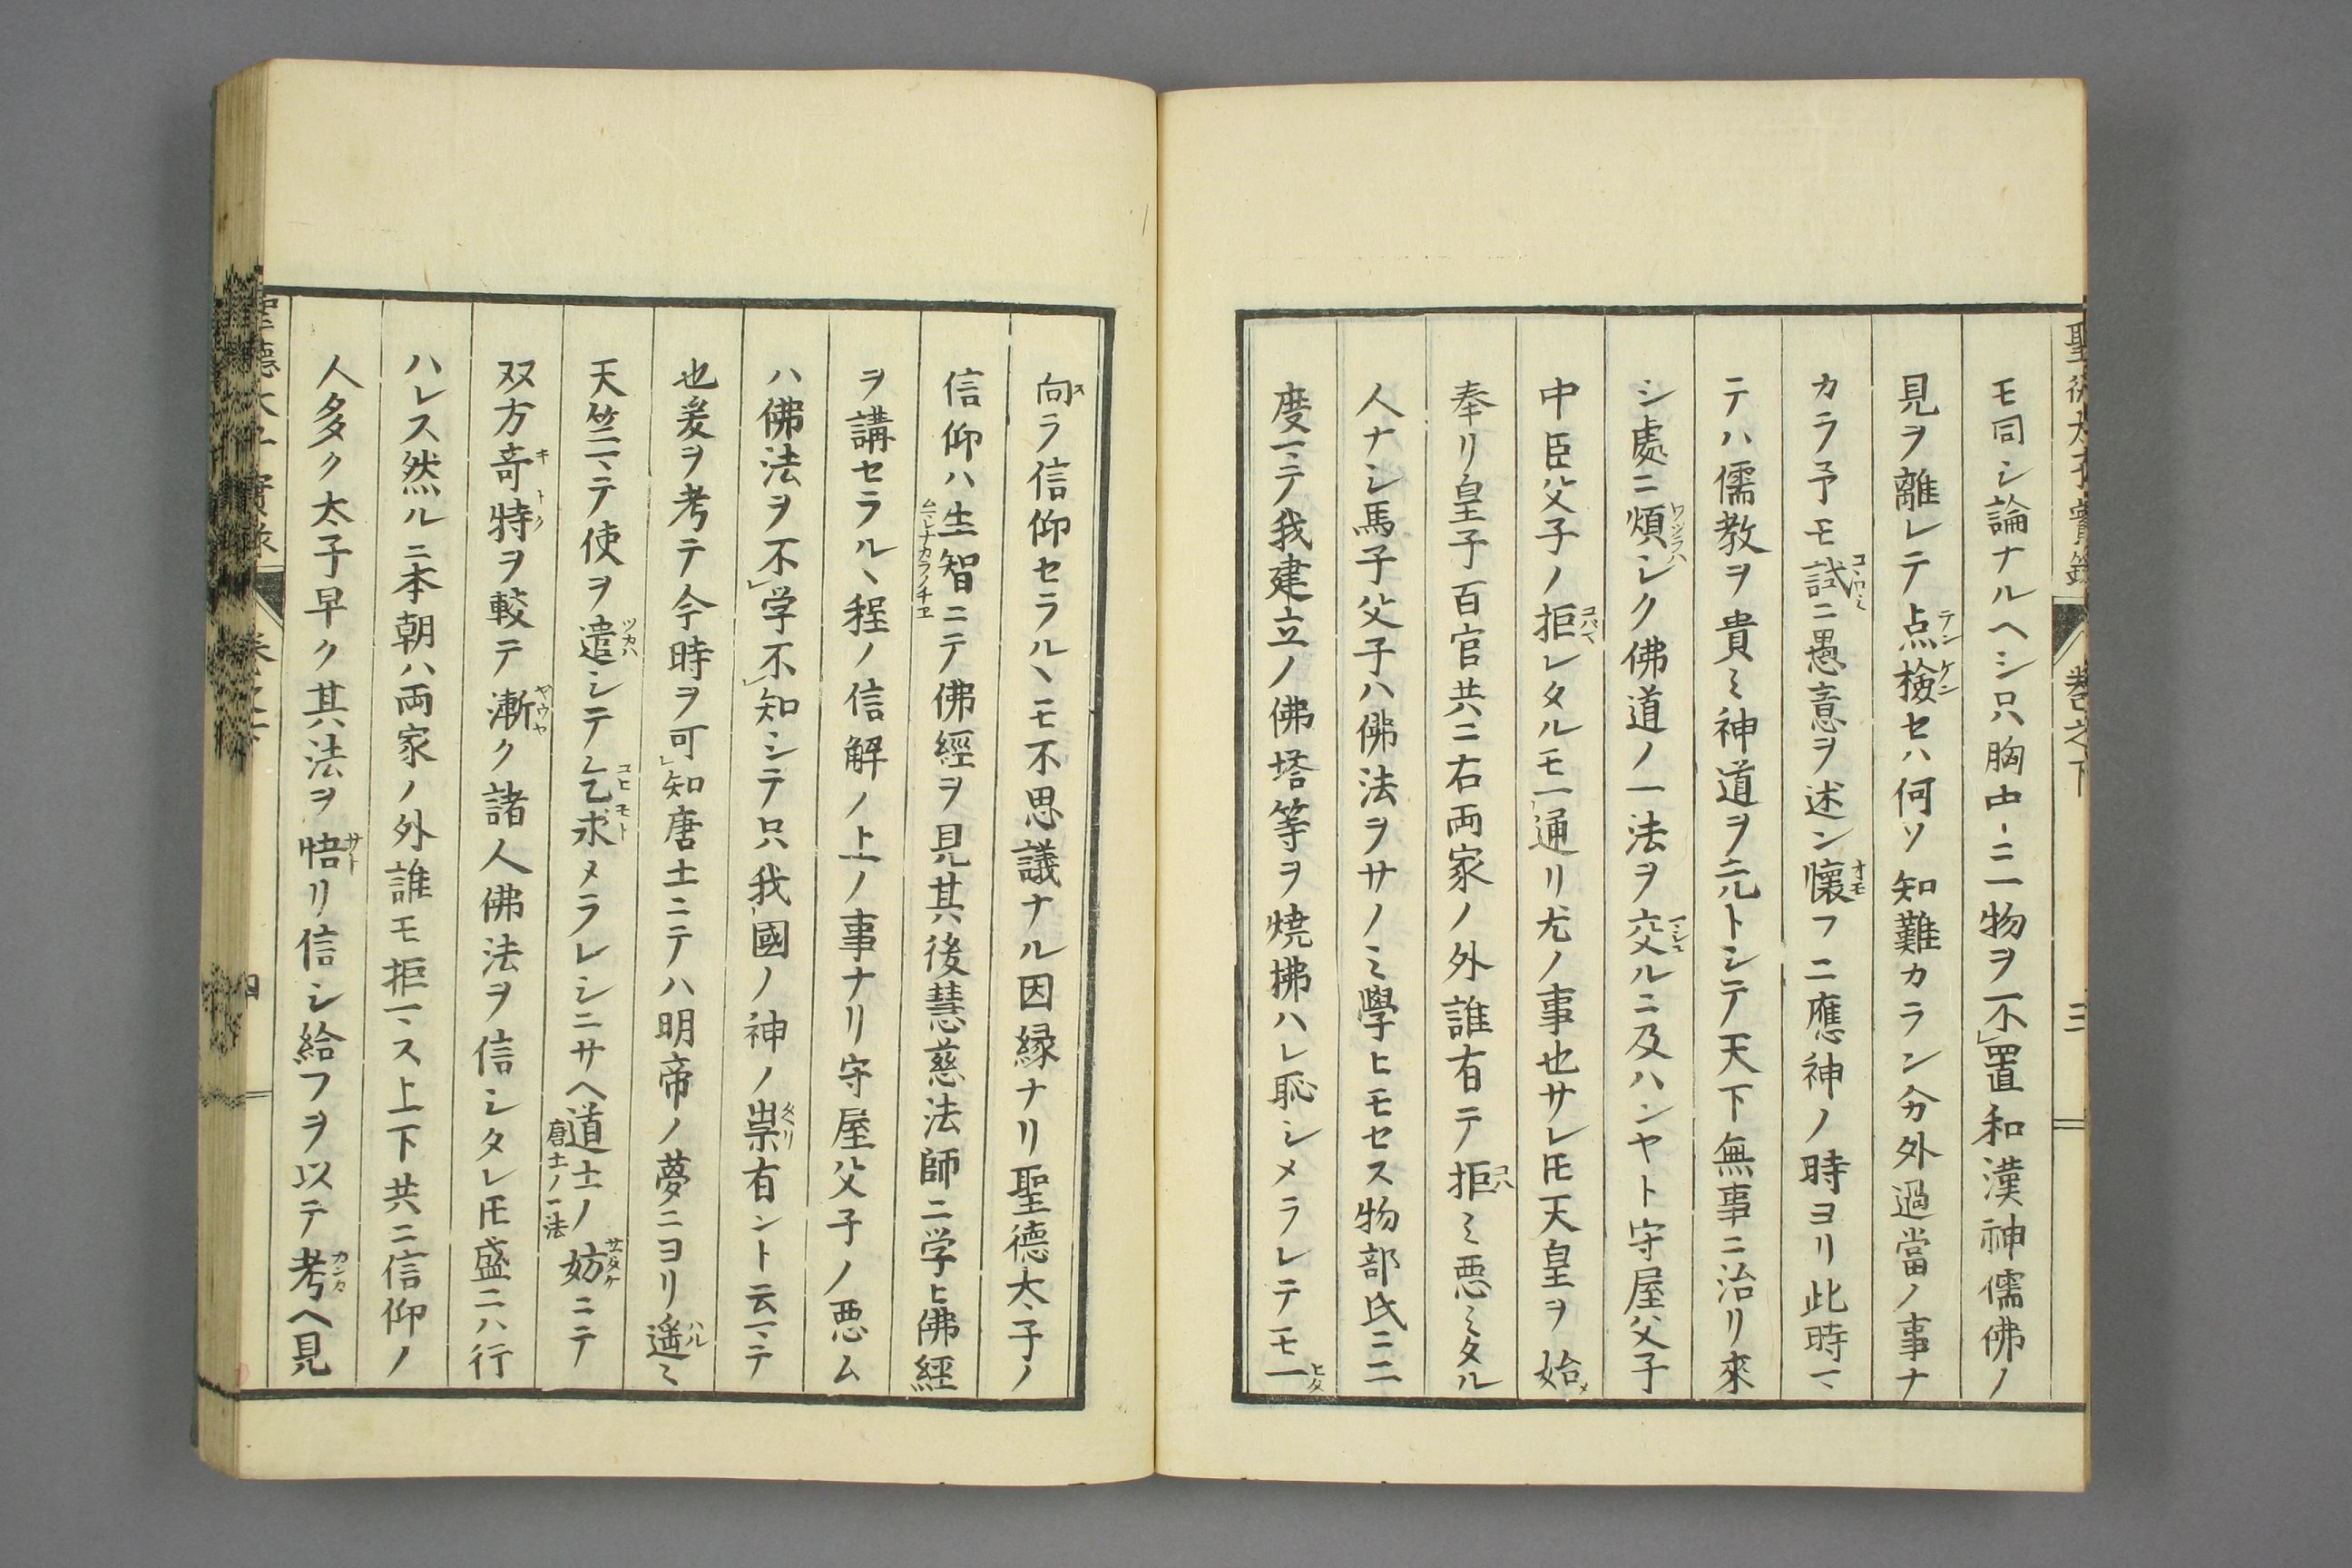 聖徳太子實錄 卷之下 三
モ同シ論ナルヘシ只胸中ニ一物ヲ不レ置和漢神儒佛ノ
見ヲ離レテ点檢セハ何ソ知難カラン分外過當ノ事ナ
カラ予モ試ニ愚意ヲ述ン懷フニ應神ノ時ヨリ此時マ
テハ儒教ヲ貴ミ神道ヲ元トシテ天下無事ニ治リ來
シ處ニ煩シク佛道ノ一法ヲ交ルニ及ハンヤト守屋父子
中臣父子ノ拒レタルモ一通リ尤ノ事也サレ𪜈天皇ヲ始
奉リ皇子百官共ニ右両家ノ外誰有テ拒ミ悪ミタル
人ナシ馬子父子ハ佛法ヲサノミ學ヒモセス物部氏ニ二
度マテ我建立ノ佛塔等ヲ焼拂ハレ恥シメラレテモ一
向ラ信仰セラルヽモ不思議ナル因縁ナリ聖德太子ノ
信仰ハ生智ニテ佛經ヲ見其後慧慈法師ニ学ヒ佛經
ヲ講セラルヽ程ノ信解ノ上ノ事ナリ守屋父子ノ悪ム
ハ佛法ヲ不レ学不レ知シテ只我國ノ神ノ祟有ント云マテ
也爰ヲ考テ今時ヲ可レ知唐土ニテハ明帝ノ夢ニヨリ遥ミ
天竺マテ使ヲ遣シテ乞求メラレシニサヘ道士ノ唐土ノ一法妨ニテ
双方竒特ヲ較テ漸ク諸人佛法ヲ信シタレ𪜈盛ニハ行
ハレス然ルニ本朝ハ両家ノ外誰モ拒マス上下共ニ信仰ノ
人多ク太子早ク其法ヲ悟リ信シ給フヲ以テ考ヘ見
聖德太子實錄 卷之下 四